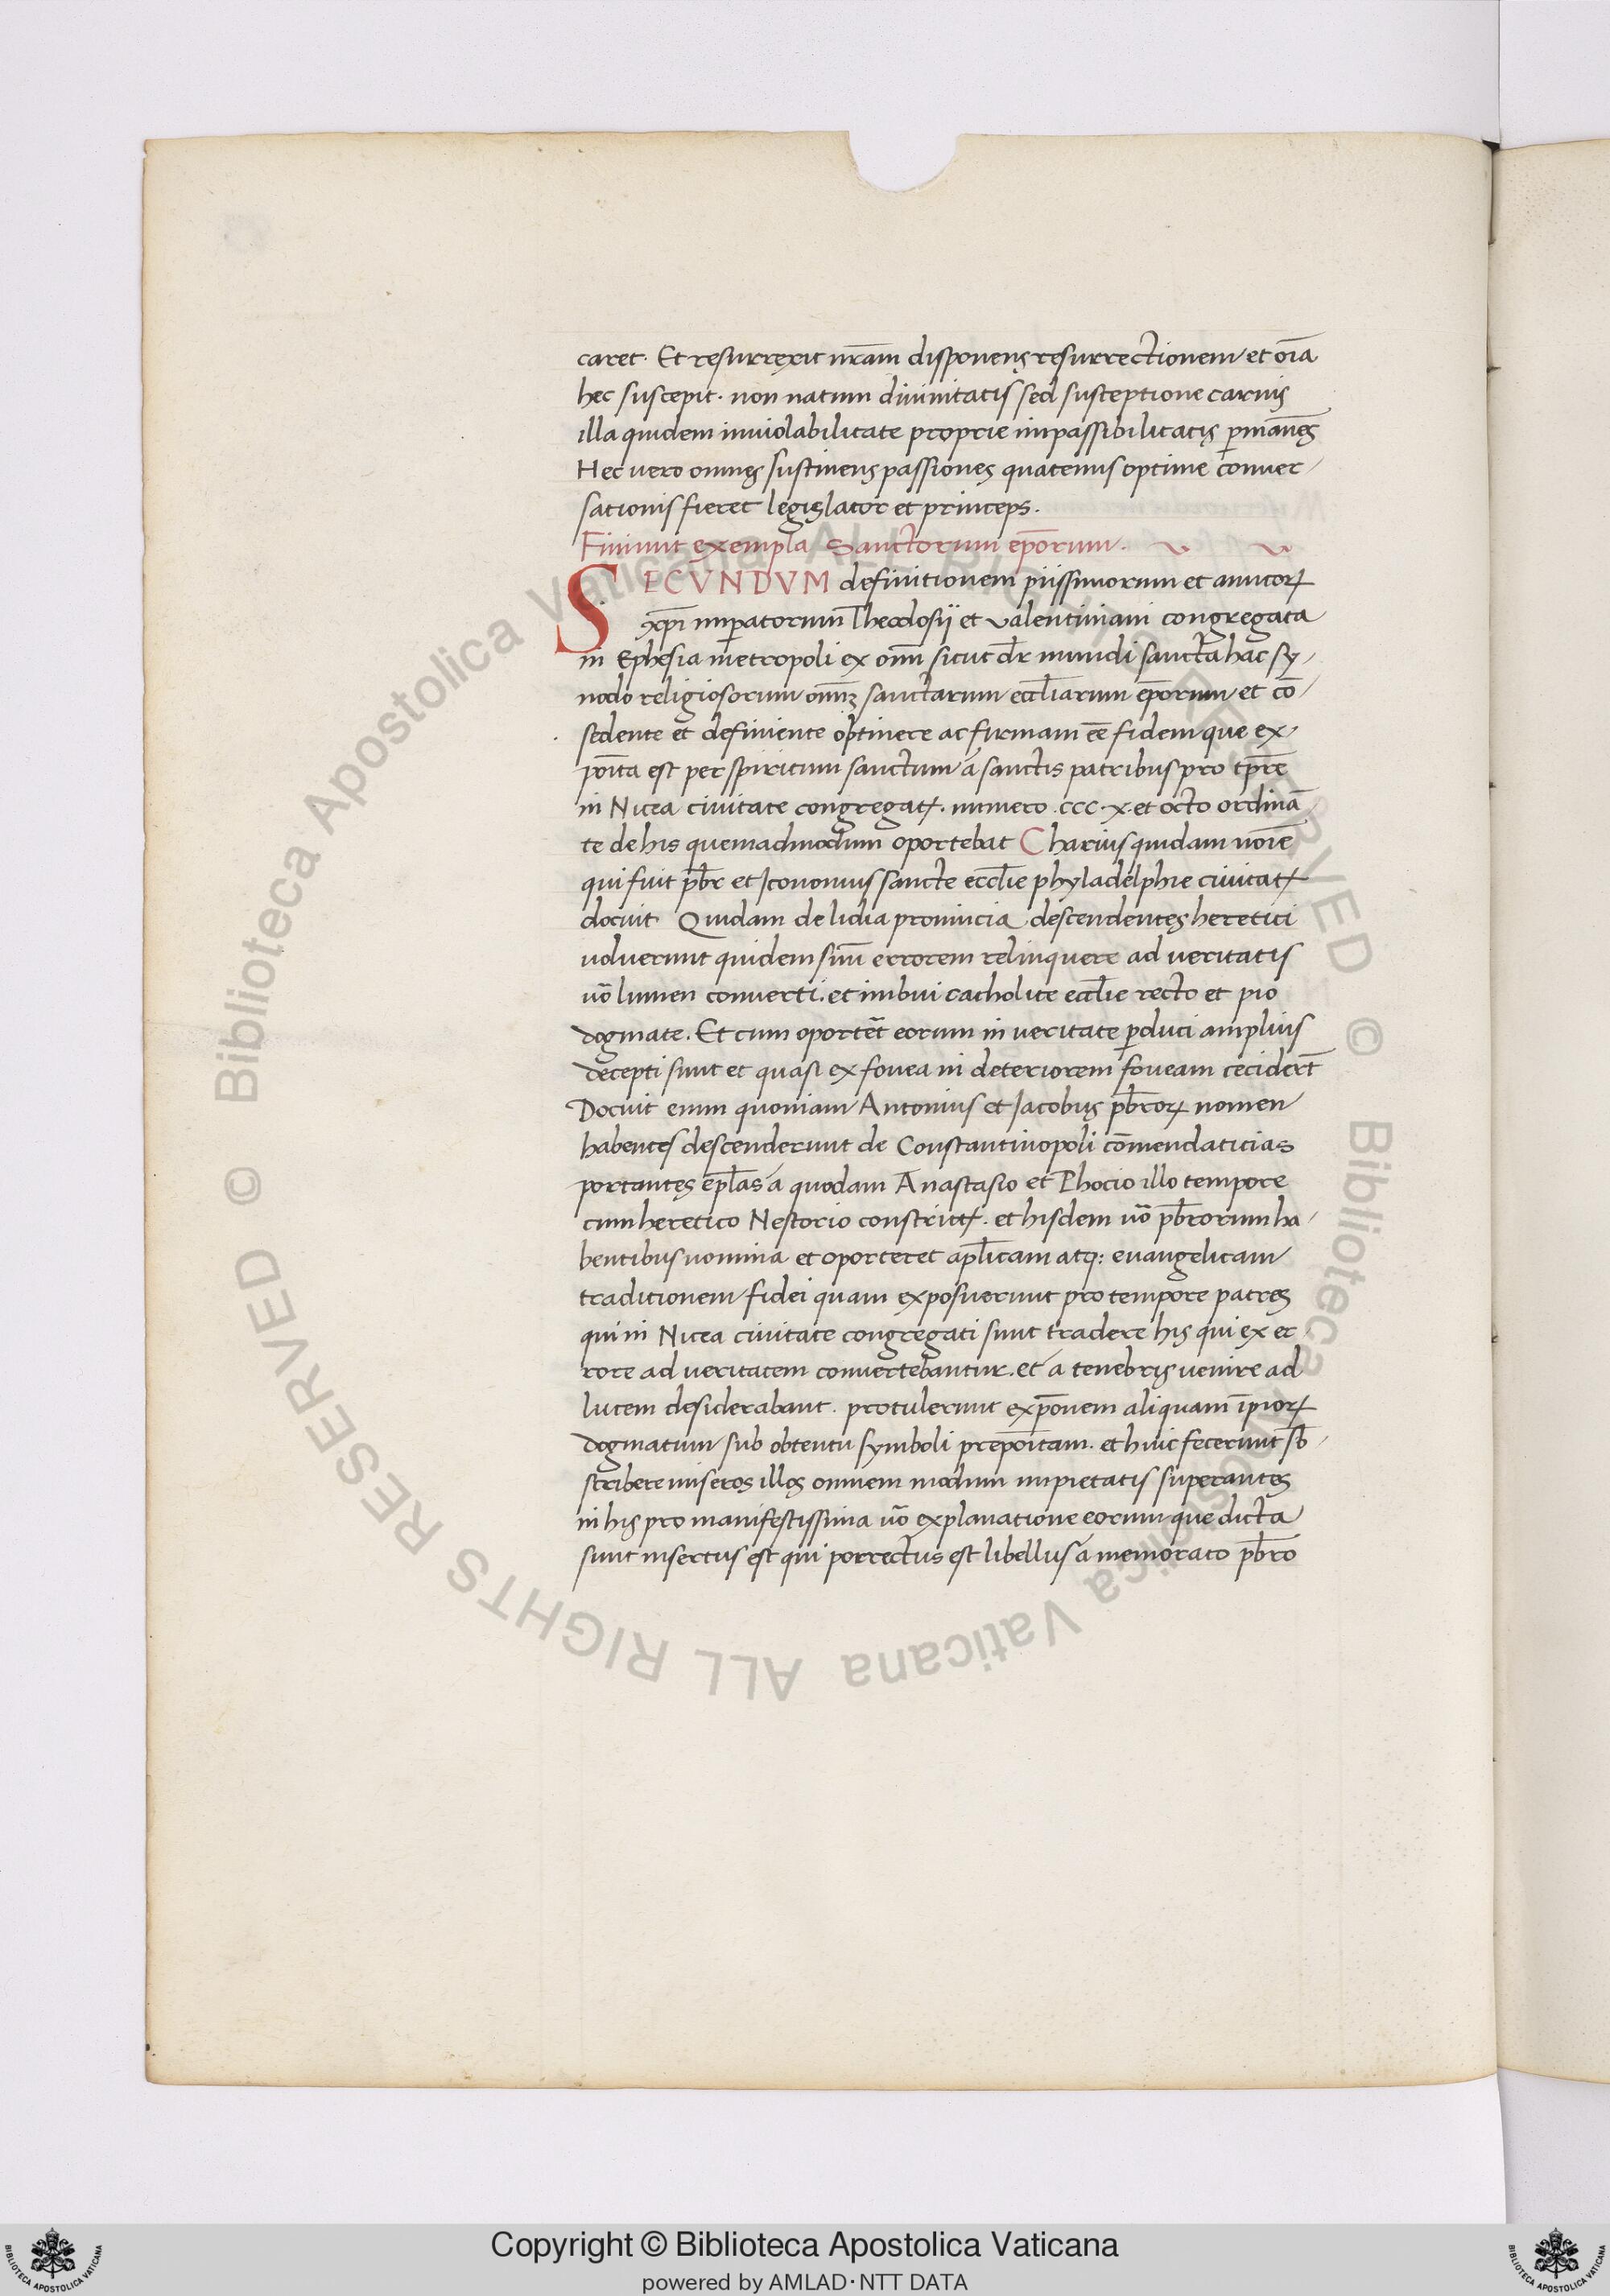 caret. Et resurrexit nr̄am disponens resurrectionem et oīa
hec suscepit. non natum diuinitatis sed susceptione carnis
illa quidem inuiolabilitate proprie impassibilitatis ꝑmanēs
Hec uero omnes sustinens passiones quatenus optime conuer/
sationis fieret legislator et princeps.
Finiunt exempla Sanctorum ep̄orum.
SECVNDVM definitionem piissimorum et amicoꝝ
xp̄i imꝑatorum Theodosij et Valentiniani congregata
in Ephesia metropoli ex omī sicut dr̄ mundi sancta hac sy/
nodo religiosorum omīuꝫ sanctarum eccl̄iarum ep̄orum et cō/
sedente et definiente optinere ac firmam eē fidem que ex/
poīta est per spiritum sanctum a sanctis patribus pro tp̄re
in Nicea ciuitate congregatꝭ. numero .ccc.x. et octo ordinā
te de his quemadmodum oportebat Charius quidam noīe
qui fuit pb̄r et Iconomus sancte eccl̄ie phyladelphie ciuitatꝭ
docuit Quidam de lidia prouincia descendentes heretici
uoluerunt quidem suū errorem relinquere ad ueritatis
uō lumen conuerti. et imbui catholice eccl̄ie recto et pio
dogmate. Et cum oportēt eorum in ueritate ꝑduci amplius
decepti sunt et quasi ex fouea in deteriorem foueam cecidert̄
Docuit enim quoniam Antonius et Jacobus pb̄roꝝ nomen
habentes descenderunt de Constantinopoli cōmendaticias
portantes epl̄as a quodam Anastasio et Phocio illo tempore
cum heretico Nestorio constitutꝭ. et hisdem uō pb̄rorum ha/
bentibus nomina et oporteret apl̄icam atq: euangelicam
traditionem fidei quam exposuerunt pro tempore patres
qui in Nicea ciuitate congregati sunt tradere his qui ex er/
rore ad ueritatem conuertebantur. et a tenebris uenire ad
lucem desiderabant. protulerunt exp̄onem aliquam īpioꝝ
dogmatum sub obtentu symboli prepoītam. et huic fecerunt sb̄/
scribere miseros illos omnem modum impietatis superantes
in his pro manifestissima uō explanatione eorum que dicta
sunt insertus est qui porrectus est libellus a memorato pb̄ro
© Biblioteca Apostolica Vaticana ALL RIGHTS RESERVED © Biblioteca Apostolica Vaticana ALL RIGHTS RESERVED
Copyright © Biblioteca Apostolica Vaticana
powered by AMLAD·NTT DATA
BIBLIOTECA APOSTOLICA VATICANA
BIBLIOTECA APOSTOLICA VATICANA